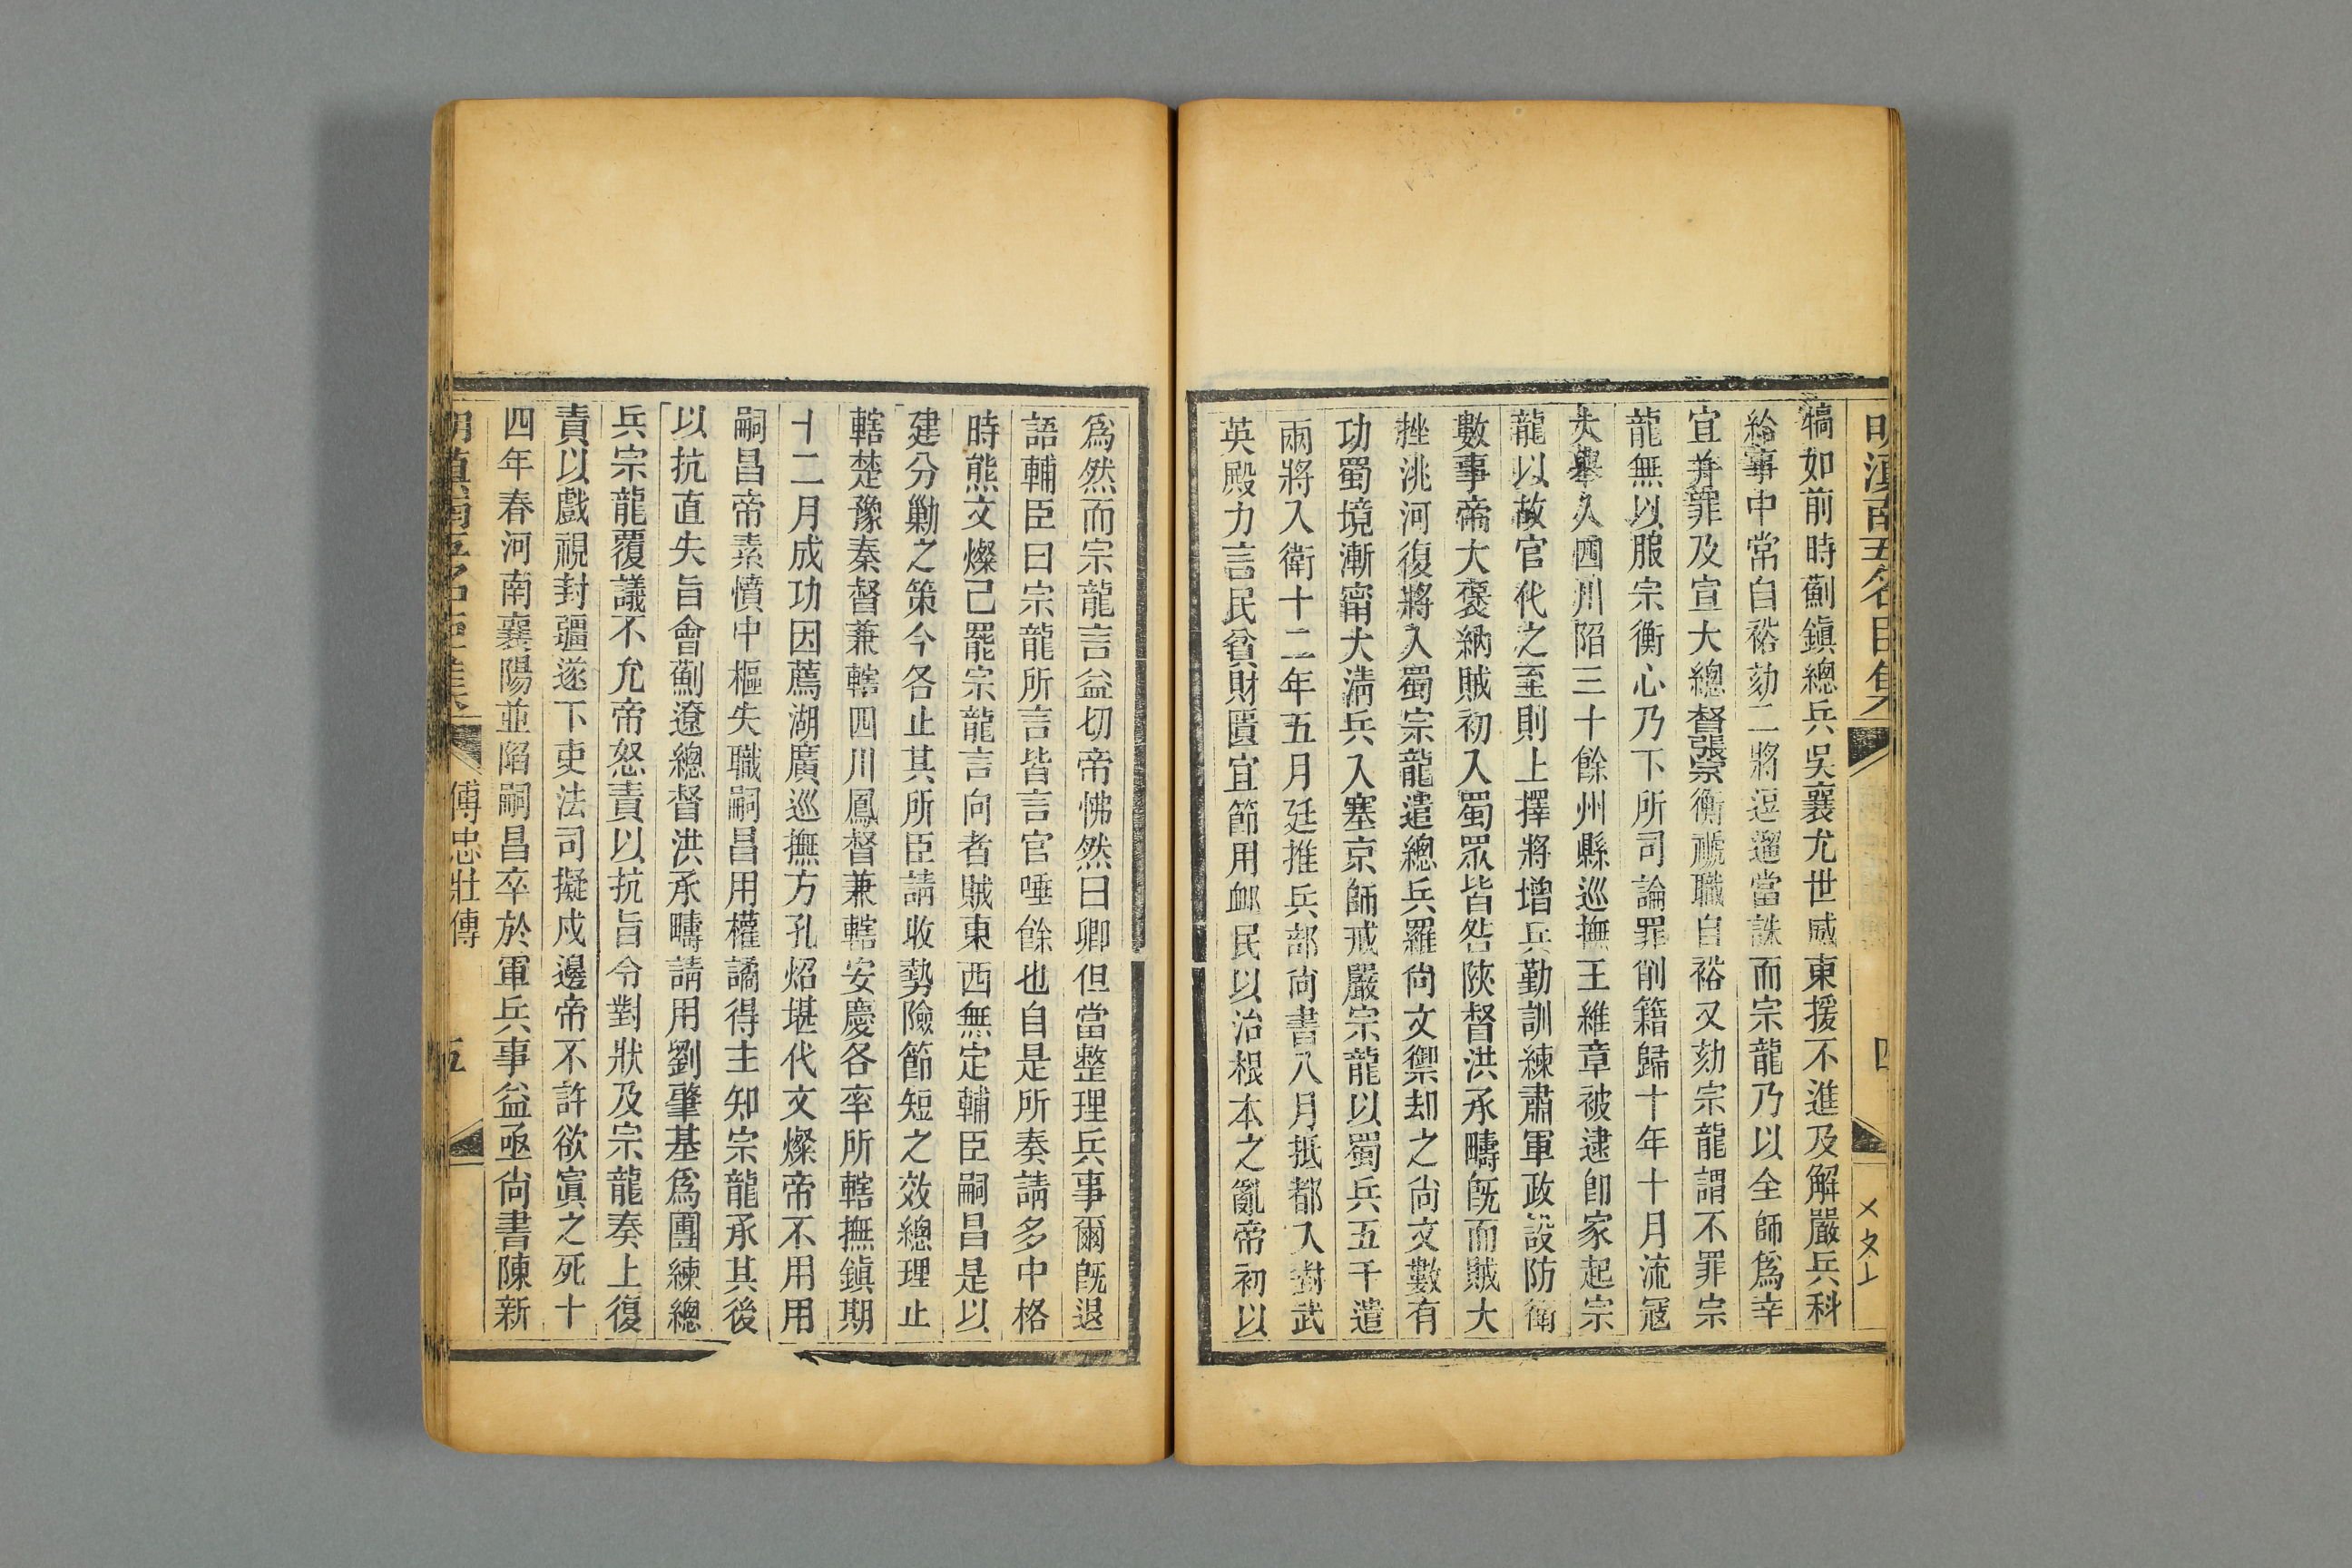 明滇南五名臣集
四
犒如前時薊鎮總兵吳襄尤世威東援不進及解嚴兵科
給事中常自裕劾二將逗遛當誅而宗龍乃以全師爲幸
宜并罪及宣大總督張崇衡禠職自裕又劾宗龍謂不罪宗
龍無以服宗衡心乃下所司論罪削籍歸十年十月流寇
大舉久四川陷三十餘州縣巡撫王維章被逮卽家起宗
龍以故官代之至則上擇將增兵勤訓練肅軍政設防衛
數事帝大褒納賊初入蜀眾皆咎陝督洪承疇旣而賊大
挫洮河復將入蜀宗龍遣總兵羅尙文禦却之尙文數有
功蜀境漸甯大淸兵入塞京師戒嚴宗龍以蜀兵五千遣
兩將入衛十二年五月廷推兵部尙書八月抵都入對武
英殿力言民貧財匱宜節用衂民以治根本之亂帝初以
爲然而宗龍言益切帝怫然曰卿但當整理兵事爾旣退
語輔臣曰宗龍所言皆言官唾餘也自是所奏請多中格
時熊文燦己罷宗龍言向者賊東西無定輔臣嗣昌是以
建分勦之策今各止其所臣請收勢險節短之效總理止
轄楚豫秦督兼轄四川鳳督兼轄安慶各率所轄撫鎮期
十二月成功因薦湖廣巡撫方孔炤堪代文燦帝不用用
嗣昌帝素憤中樞失職嗣昌用權譎得主知宗龍承其後
以抗直失旨會薊遼總督洪承疇請用劉肇基爲團練總
兵宗龍覆議不允帝怒責以抗旨令對狀及宗龍奏上復
責以戲視封疆遂下吏法司擬戍邊帝不許欲寘之死十
四年春河南襄陽並陷嗣昌卒於軍兵事益亟尙書陳新
明滇南五名臣集
傅忠壯傳
五